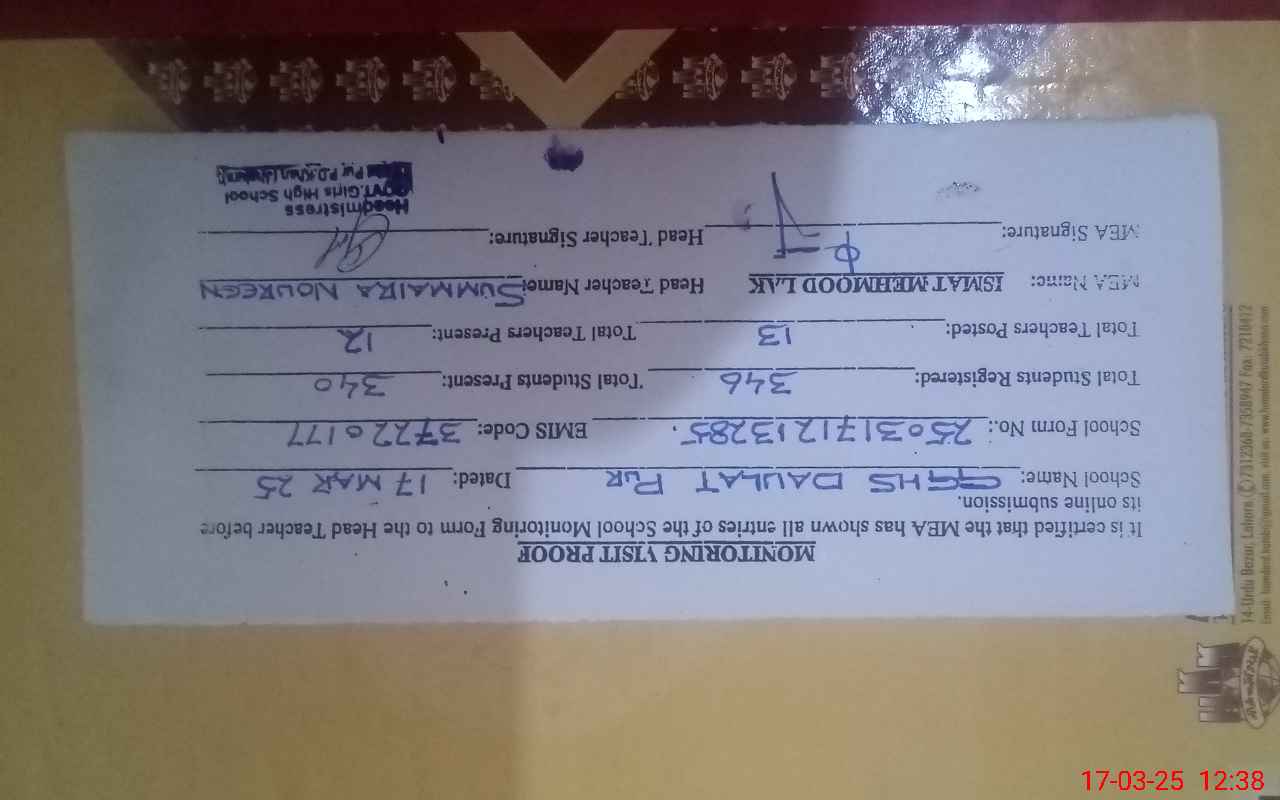 MONITORING VISIT PROOF
It is certified that the MEA has shown all entries of the School Monitoring Form to the Head Teacher before
its online submission.
School Name: GGHS DAULAT PUR Dated: 17 MAR 25
School Form No.: 2503171213285. EMIS Code: 37220177
Total Students Registered: 346 Total Students Present: 340
Total Teachers Posted: 13 Total Teachers Present: 12
MEA Name: ISMAT MEHMOOD LAK Head Teacher Name: SUMMAIRA NOUREEN
MEA Signature: Head Teacher Signature:
Headmistress
GOVT.Girls High School
Pur P.D.Khan
14-Urdu Bazar, Lahore. 7312368-7358947 Fax: 7210472
17-03-25 12:38